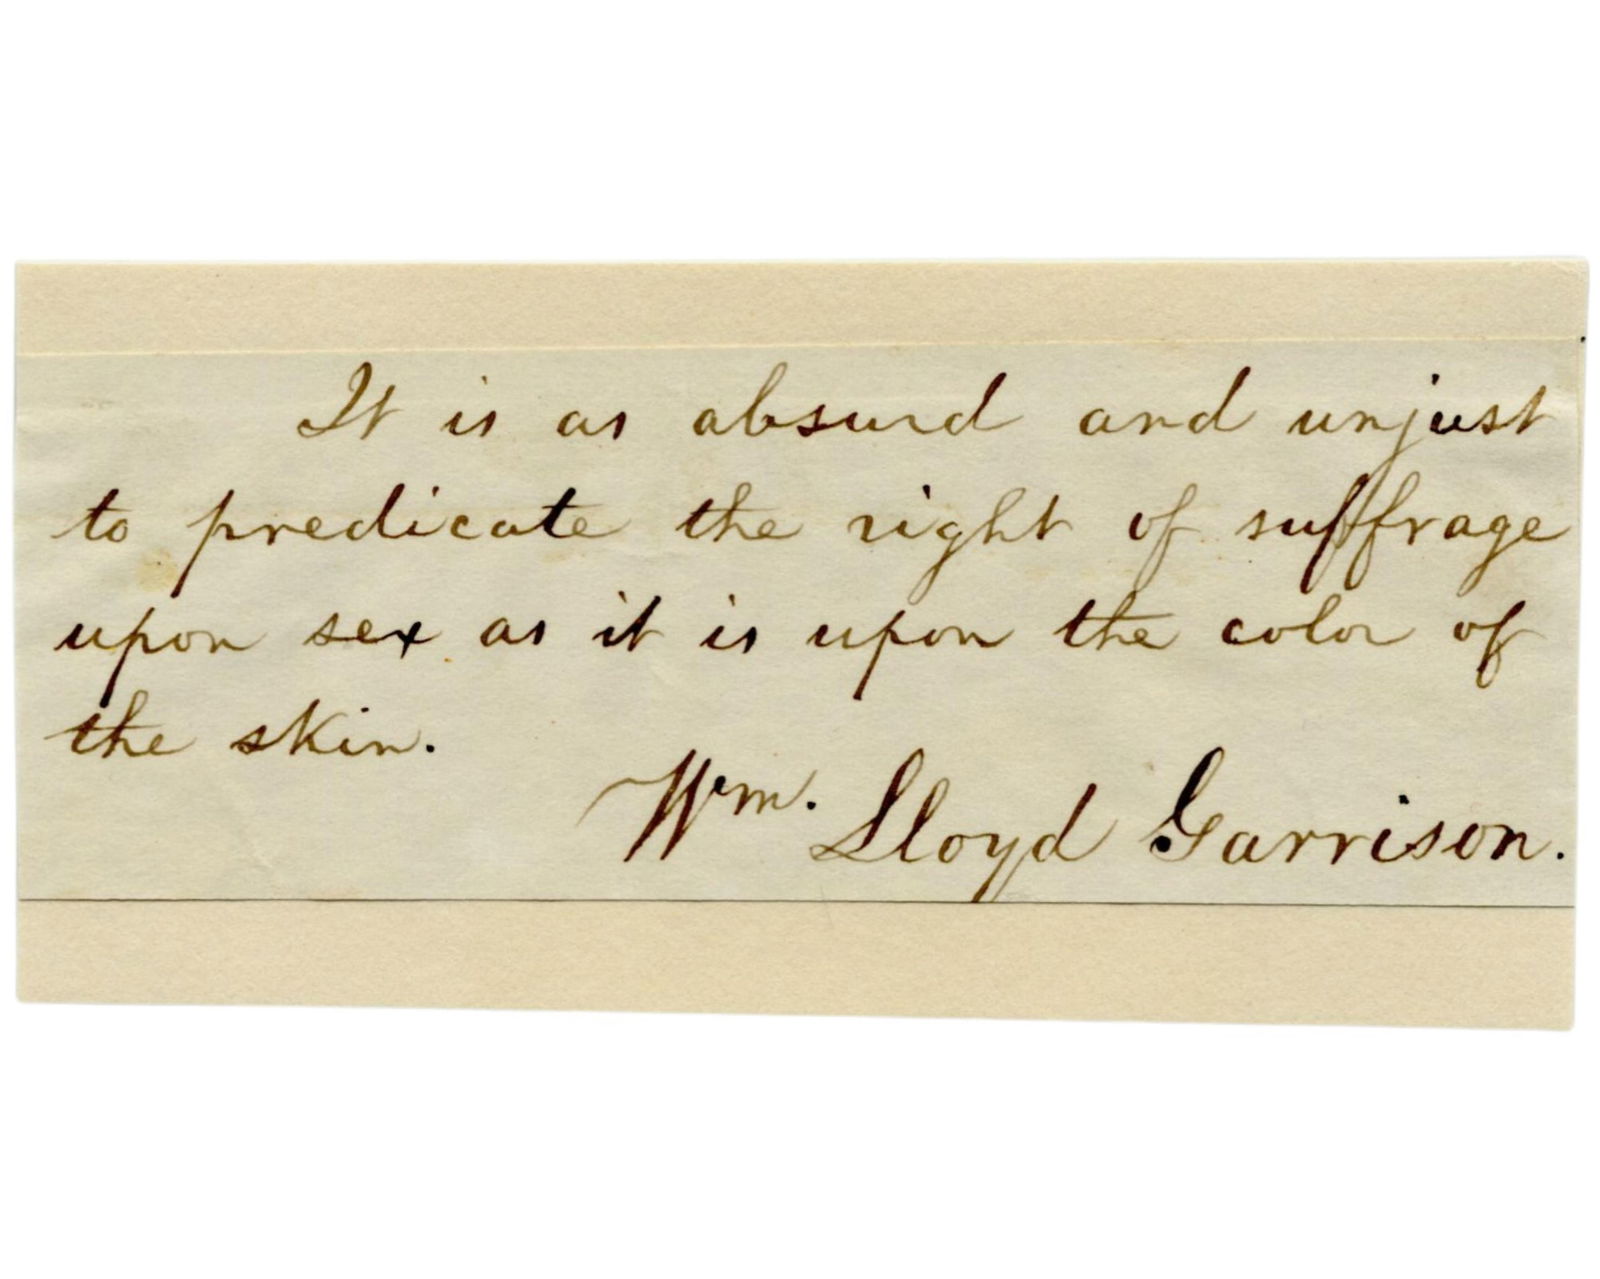 It is as absurd and unjust
to predicate the right of suffrage
upon sex as it is upon the color of
the skin.
Wm. Lloyd Garrison.